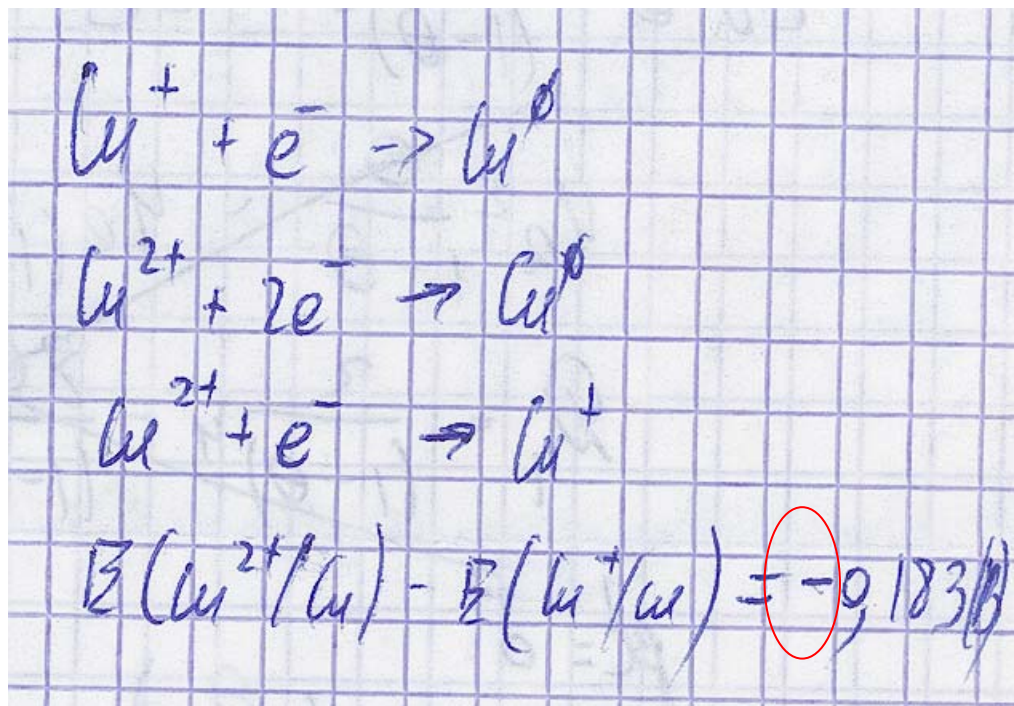 Cu⁺ + e⁻ → Cu⁰
Cu²⁺ + 2e⁻ → Cu⁰
Cu²⁺ + e⁻ → Cu⁺
E(Cu²⁺/Cu) - E(Cu⁺/Cu) = -0,183(В)